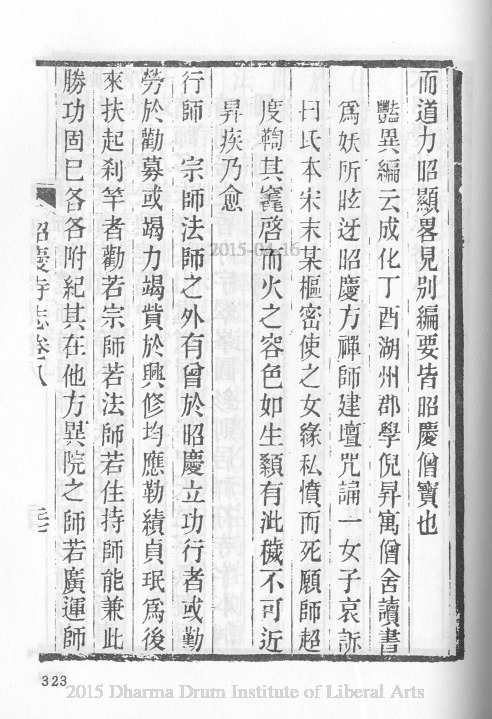 而道力昭顯畧見別編要皆昭慶僧寶也
豔異編云成化丁酉湖州郡學倪昇寓僧舍讀書
爲妖所眩迓昭慶方禪師建壇咒誦一女子哀訴
曰氏本宋末某樞密使之女緣私憤而死願師超
度䩞其竁啓而火之容色如生纇有泚穢不可近
昇疾乃愈
行師 宗師法師之外有曾於昭慶立功行者或勤
勞於勸募或竭力竭貲於興修均應勒績貞珉爲後
來扶起刹竿者勸若宗師若法師若住持師能兼此
勝功固已各各附紀其在他方異院之師若廣運師
昭慶寺志卷八
323
2015-04-16
2015 Dharma Drum Institute of Liberal Arts